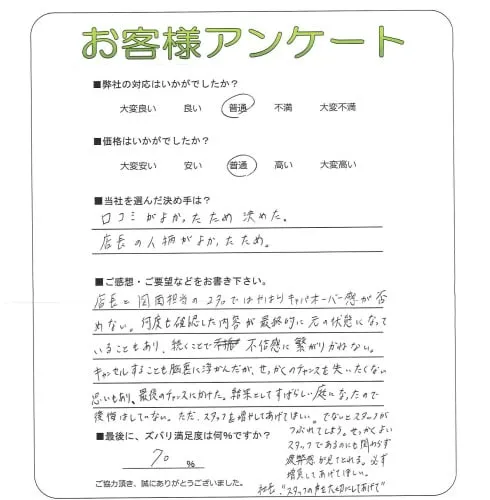 お客様アンケート
■弊社の対応はいかがでしたか？
大変良い 良い 普通 不満 大変不満
■価格はいかがでしたか？
大変安い 安い 普通 高い 大変高い
■当社を選んだ決め手は？
口コミがよかったため決めた。
店長の人柄がよかったため。
■ご感想・ご要望などをお書き下さい。
店長と図面担当の2人ではやはりキャパオーバー感が否
めない。何度も確認した内容が最終的に元の状態になって
いることもあり、続くことで不信感に繋がりかねない。
キャンセルすることも脳裏に浮かんだが、せっかくのチャンスを失いたくない
思いもあり、最後のチャンスにかけた。結果としてすばらしい庭になったので
後悔はしていない。ただ、スタッフを増やしてあげてほしい。でないとスタッフが
つぶれてしまう。せっかくよい
スタッフであるのにも関わらず
疲弊感が見てとれる。必ず
増員してあげてほしい。
社長、"スタッフの声を大切にしてあげて"
■最後に、ズバリ満足度は何％ですか？
70 ％
ご協力頂き、誠にありがとうございました。